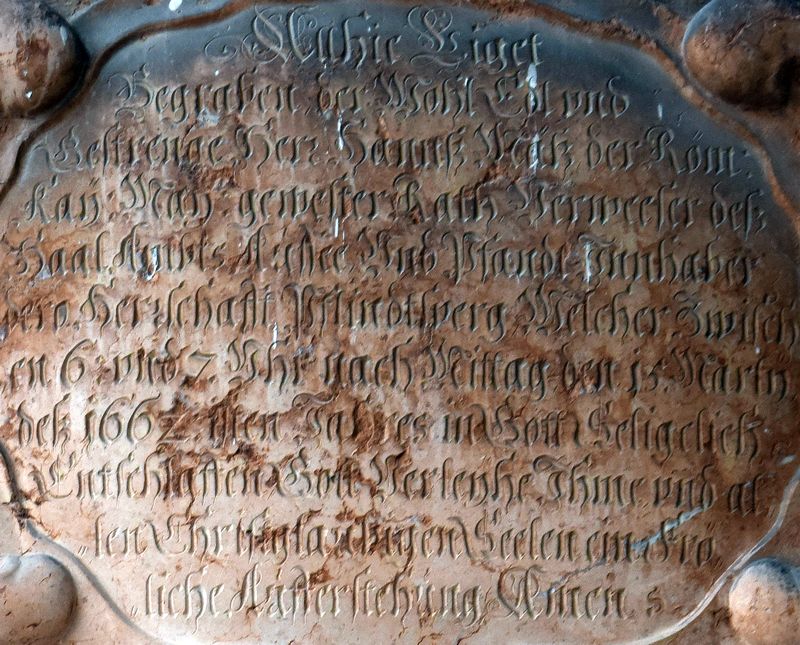 Alhie Liget
Begraben der Wohl Edl vnd
Gestrenge Herr Hannß Wätz der Röm:
Kaÿ: Maÿ: gewester Rath Verweeser deß
Haal Ambts Aussee Vnd Pfandt Innhaber
dero Herrschafft Pflindtsperg Welcher Zwisch
en 6 vnd 7 Vhr nach Mittag den 15 Martÿ
deß 1662 isten Jahres in Gott Seligelich
Entschlaffen Gott Verleyhe Ihme vnd al
len Christglaubigen Seelen ein Frö
liche Aufferstehung Amen